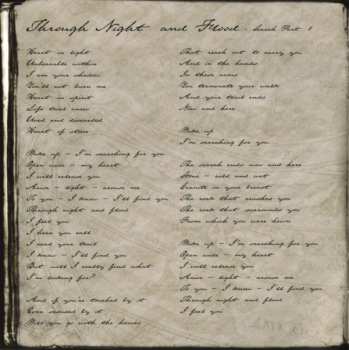 Through Night and Flood - Search Part I
Heart is light
Unbearable within
I am your shadow
You'll not burn me
Heart in spirit
Life
Used and discarded
Heart of stone
Wake up - I'm searching for you
Open wide - my heart
I will release you
Aura - light - around me
To you - I know - I'll find you
Through night and flood
I feel you
I hear you call
I need your trust
I know - I'll find you
But will I really find what
I'm looking for?
And if you're touched by it
Even wounded by it
Will you go with the hands
That reach out to carry you
And in the hands
In these arms
You terminate your walk
And your trust ends
Now and here
Wake up
I'm searching for you
The search ends now and here
Stone - cold and wet
Granite in your breast
The rock that crushes you
The rock that surrounds you
From which you were hewn
Wake up - I'm searching for you
Open wide - my heart
I will release you
Aura - light - around me
To you - I know - I'll find you
Through night and flood
I feel you